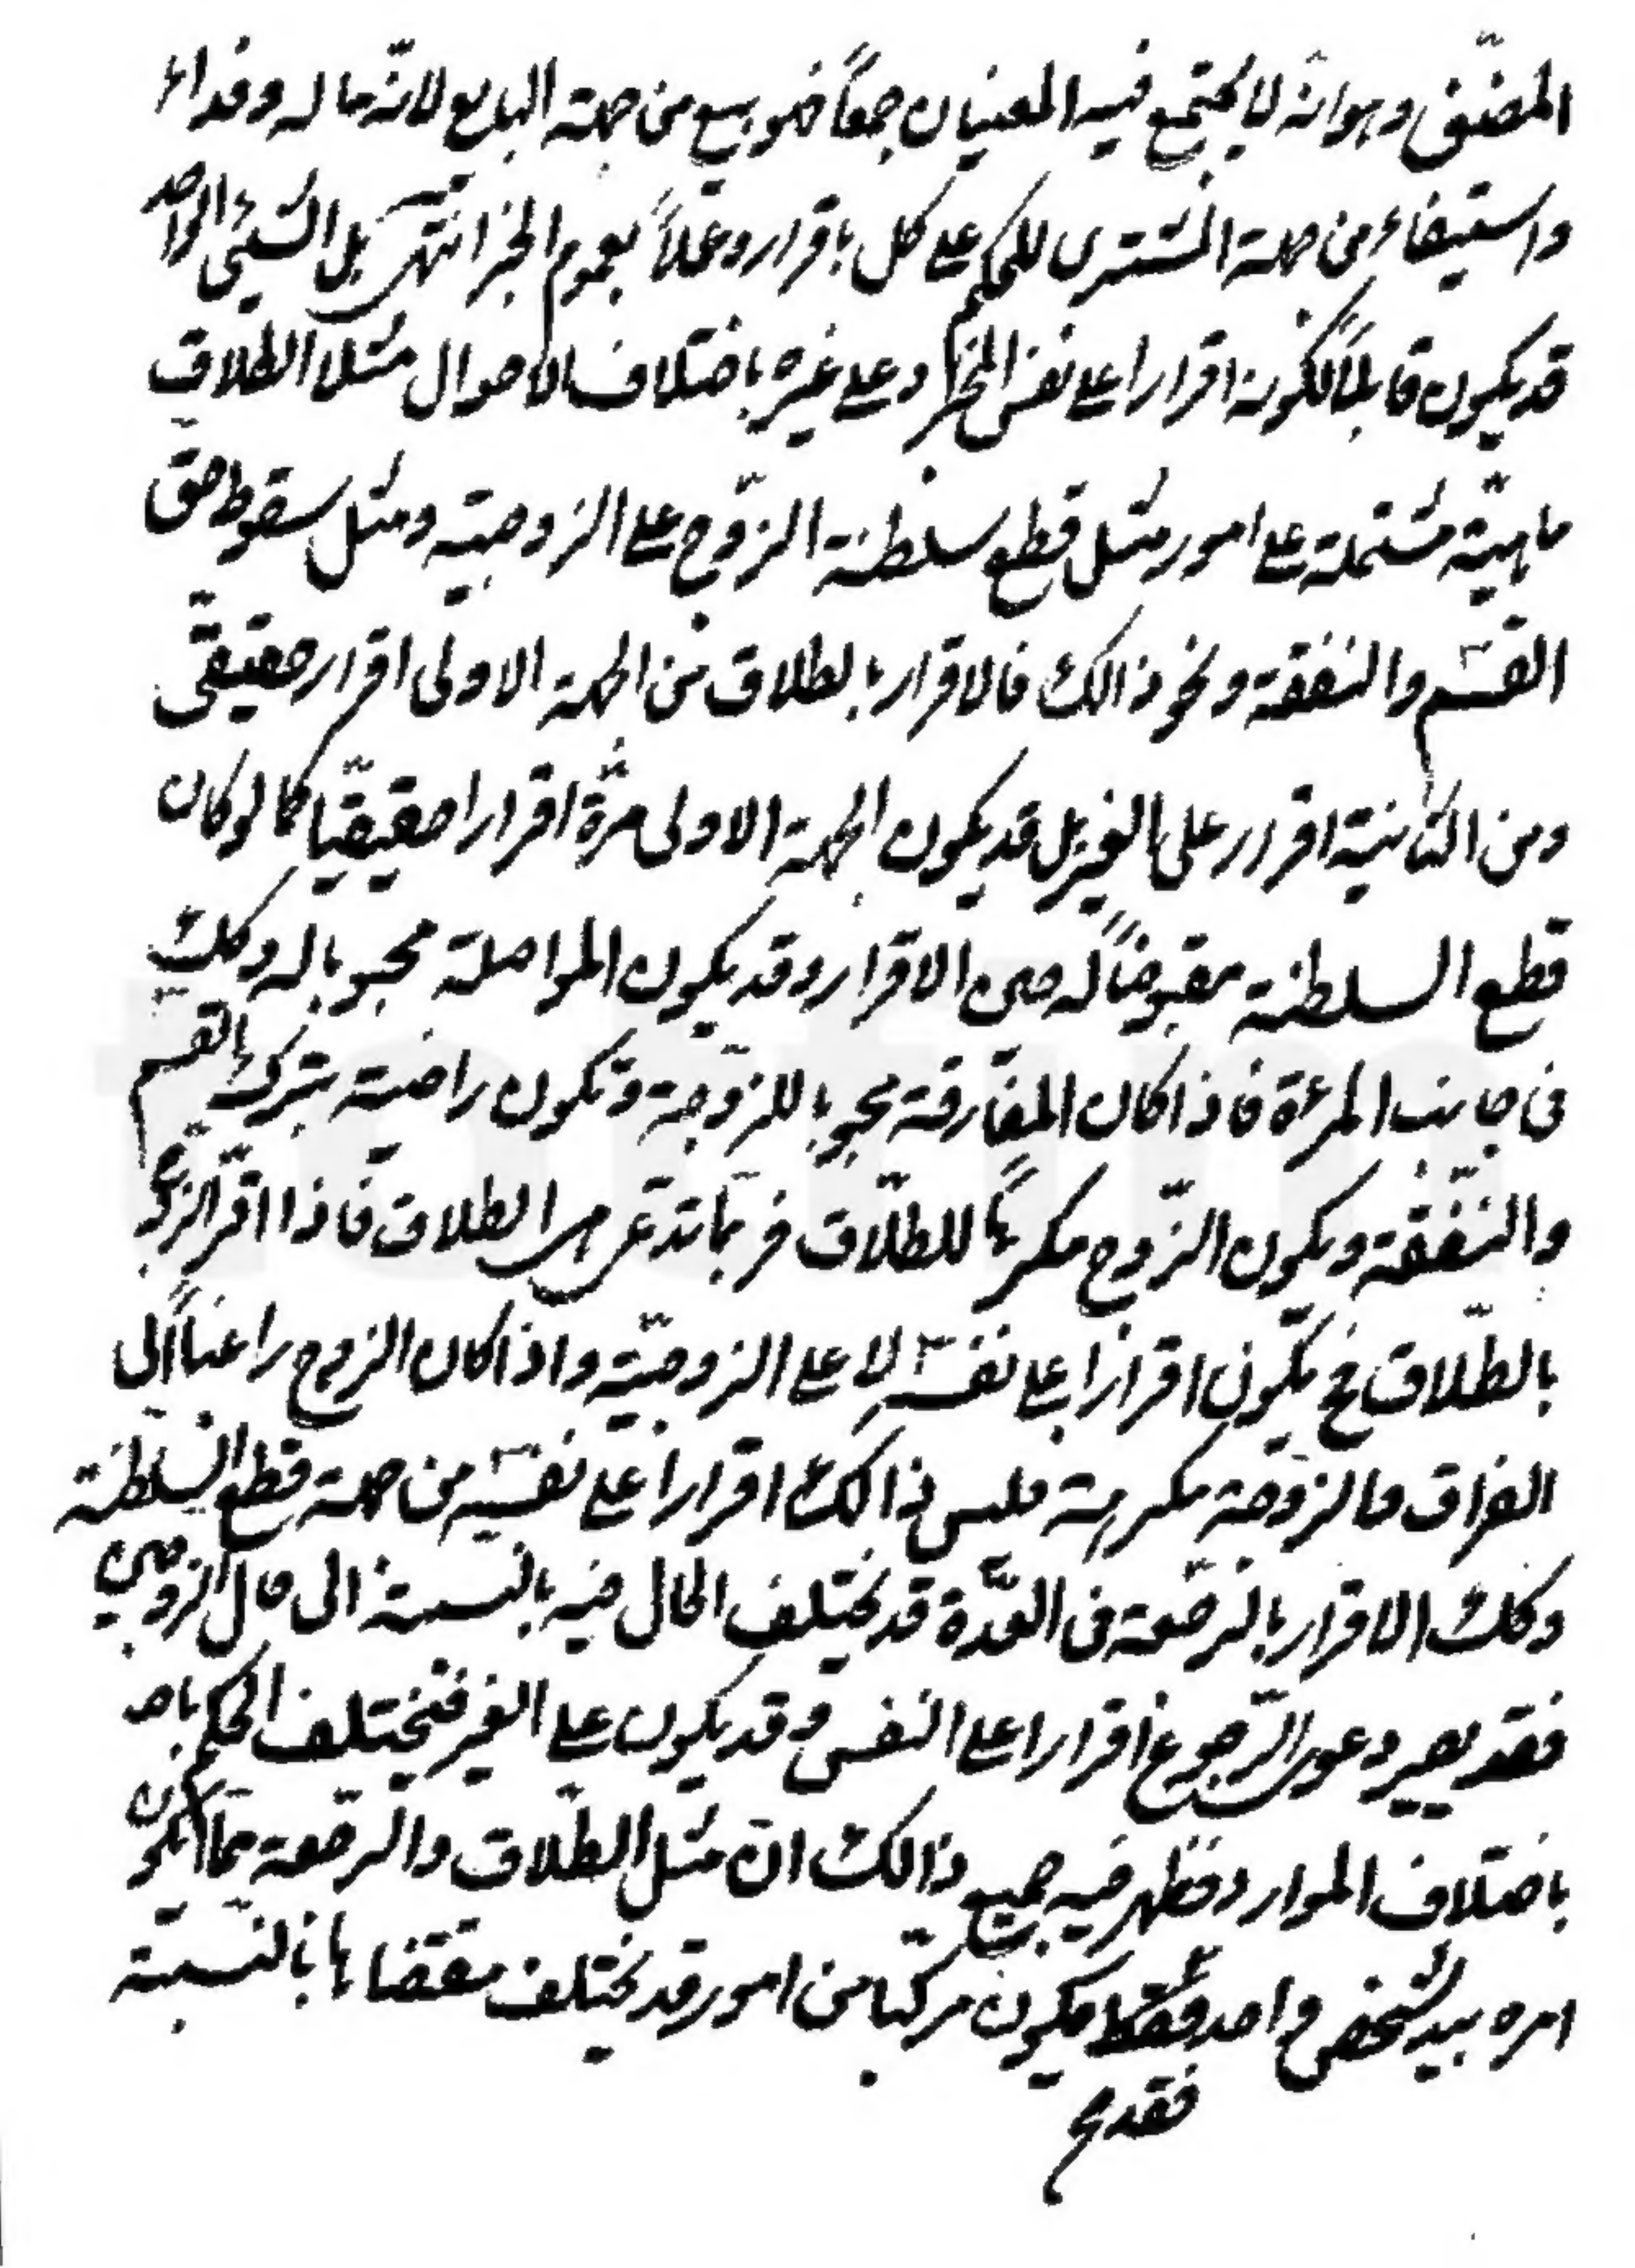 المصنّف وهو انه لا يجتمع فيه المعنيان جمعاً فهو بيع من جهة البايع لانّه ماله وفداء
واستيفاء من جهة المشترى للحكم على كل باقراره وعملاً بعموم الخبر انتهى بل الشيئ الواحد
قد يكون قابلاً لكونه اقرارا على نفس المخبر وعلى غيره باختلاف الاحوال مثلا الطلاق
ماهيّة مشتملة على امور مثل قطع سلطنة الزّوج على الزوجيّة ومثل سقوط حق
القسم والنفقة ونحو ذالك فالاقرار بالطلاق من الجهة الاولى اقرار حقيقىّ
ومن الثانية اقرار على الغير بل قد يكون الجهة الاولى مرّة اقرارا حقيقيّا كما لو كان
قطع السلطنة مقبوضاً له حين الاقرار وقد يكون المواصلة محبوبا له وكك
فى جانب المرءة فاذا كان المفارقة محبوبا للزّوجة وتكون راضية بترك القسم
والنّفقة ويكون الزّوج مكرهاً للطلّاق فربّما تدعى هى الطلاق فاذا اقرّ الزّوج
بالطلّاق فح يكون اقرارا على نفسه لا على الزوجيّة واذا كان الزوج راغباً الى
الفراق والزّوجة مكرهة فليس ذالك اقرارا على نفسه من جهة قطع السّلطنة
وكك الاقرار بالرجعة فى العدّة قد يختلف الحال فيه بالنسبة الى حال الزوجين
فقد يصير دعوى الرّجوع اقرارا على النفس وقد يكون على الغير فيختلف الحكم باخـ
باختلاف الموارد فظهر فيه جميع ذالك انّ مثل الطلّاق والرّجعة ممّا يكون
امره بيد شخص واحد فقط يكون مركّبا من امور قد يختلف مقتضاها بالنّسبة
فقد